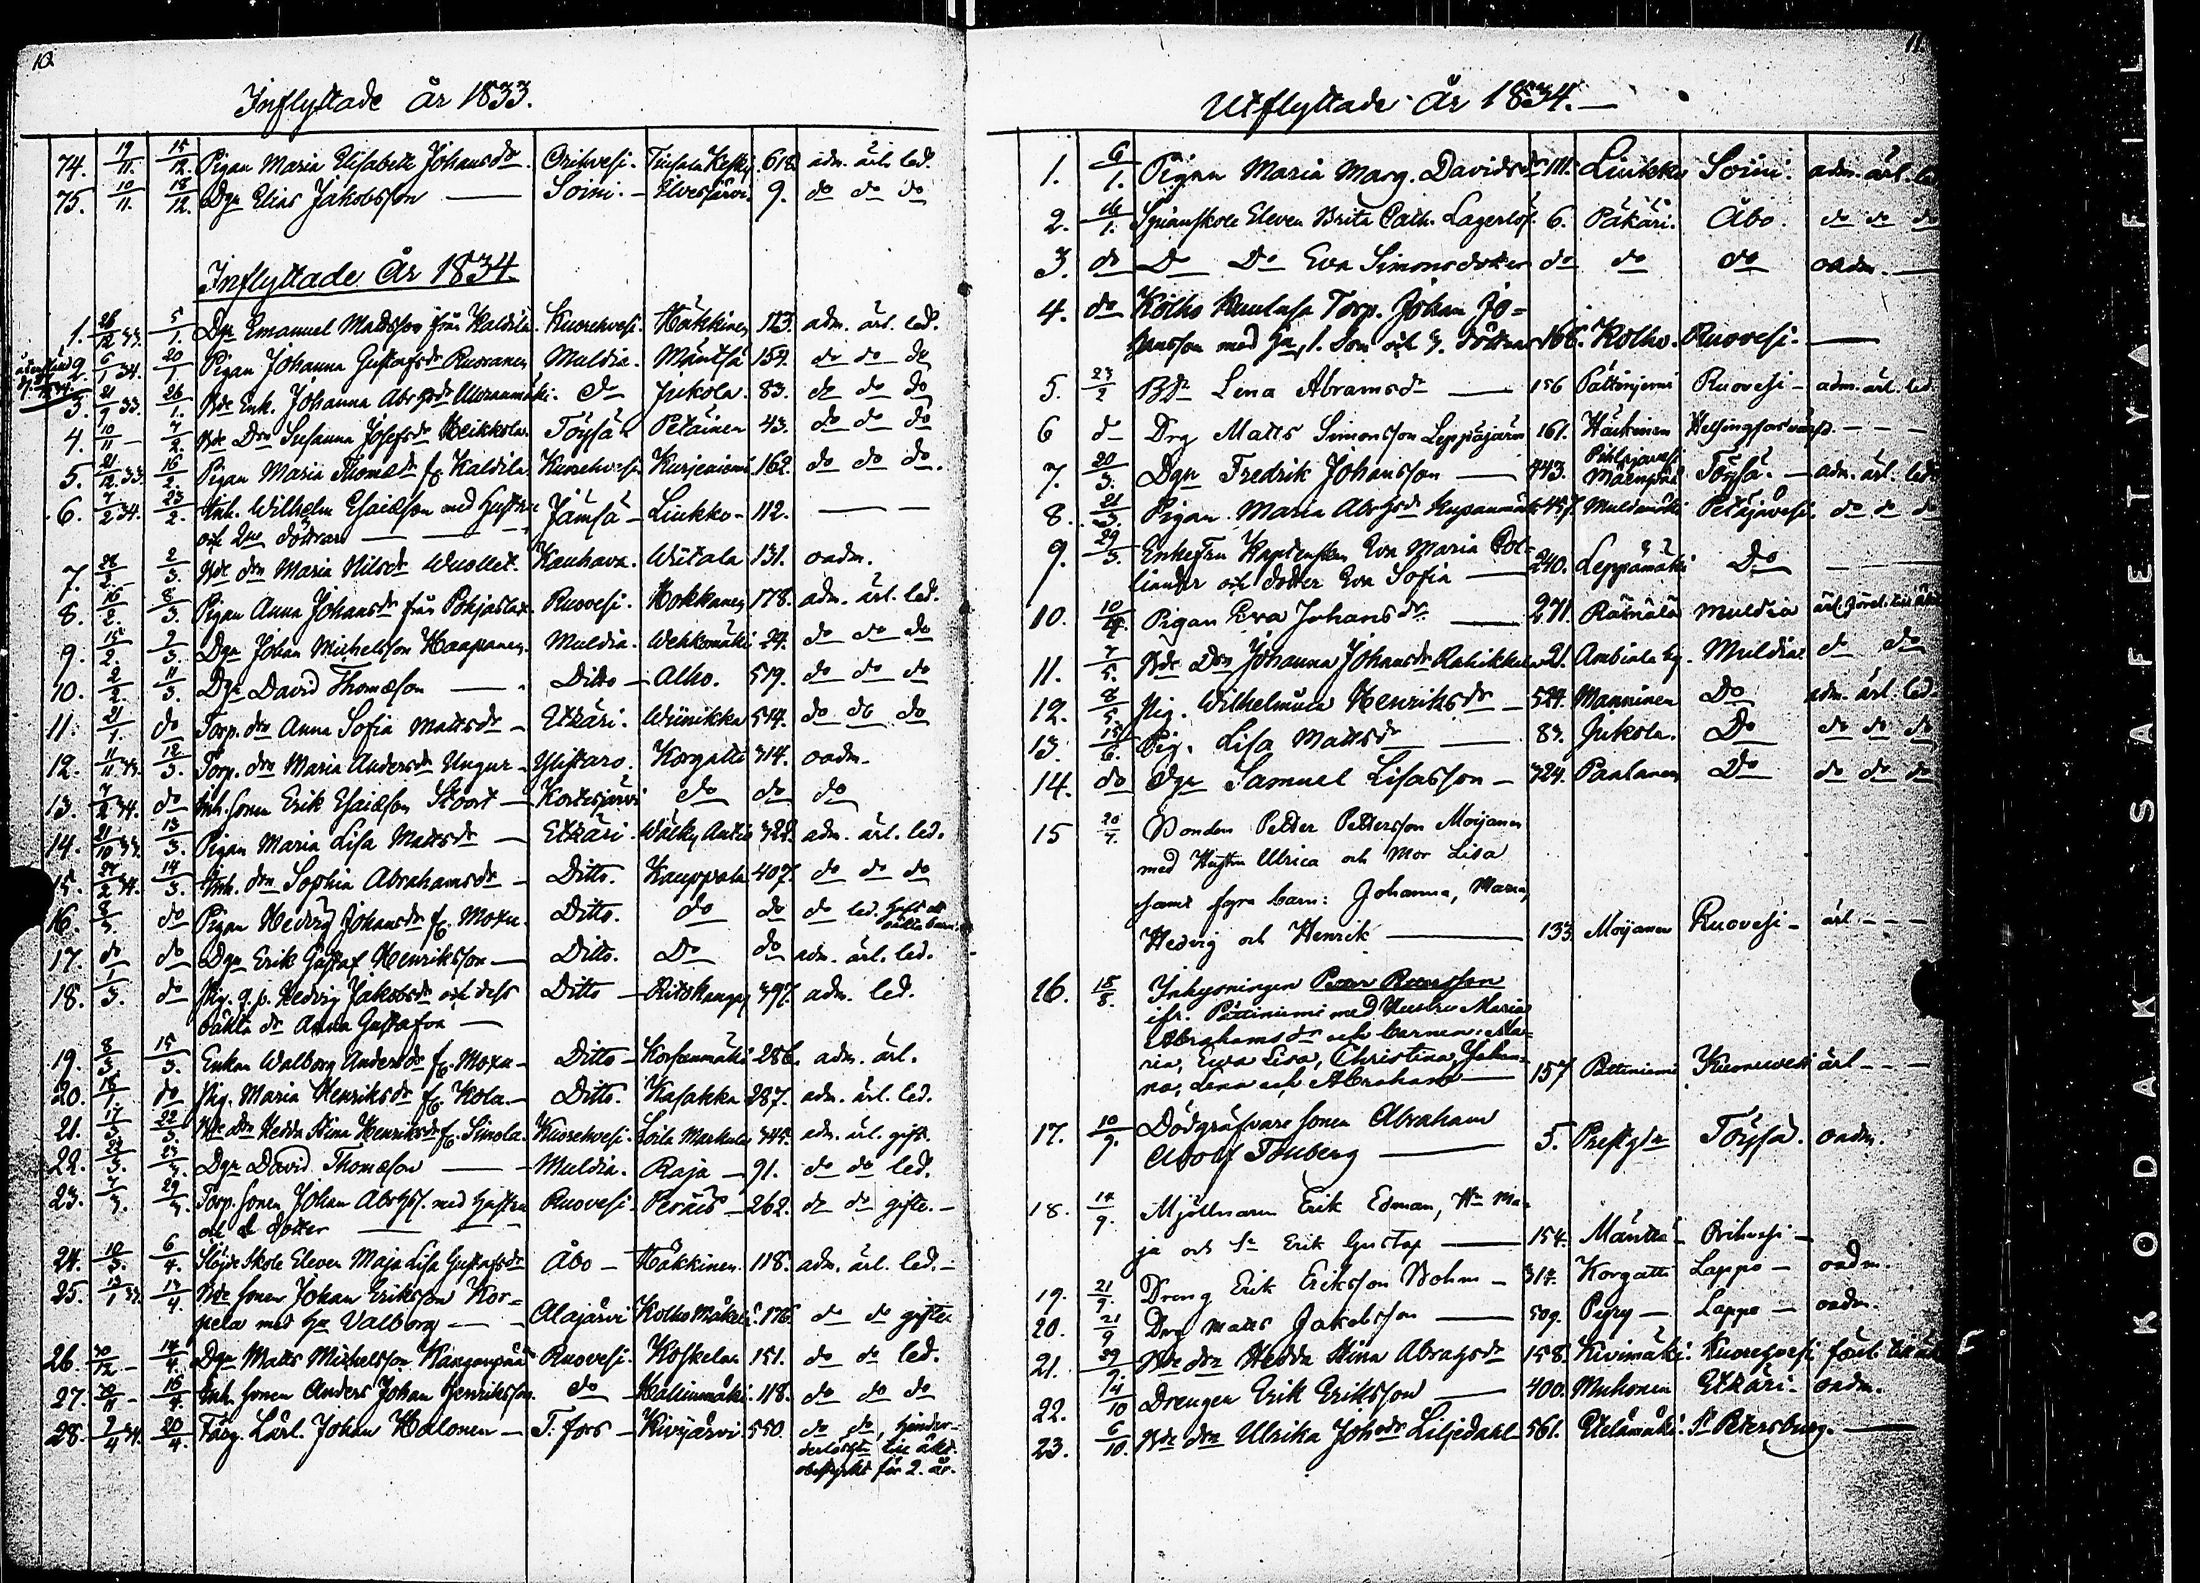 10.
Inflyttade år 1833.
74. 19/11. 15/12. Pigan Maria Elisabete Johansdr. Orihvesi. 618 adm. ärl. led.
75. 10/11. 18/12. Dgn Elias Jakobsson — Soini. — Elvesjärvi. 9. do do do
Inflyttade År 1834.
1. 28/12 33. 5/1. Dgn Emanuel Mattsson från Kaldila. Kuorehvesi. Häkkinen 123. adm. ärl. led.
2. 6/1 34. 20/1 Pigan Johanna Gustafsdr Ruoranen Muldia. Mäntsä 154. do do do
3. 21/9 33. 26/1. Enk. Johanna do Jukola. 83. do do do
4. 10/11 — 7/2. Bde Drn Susanna Josefsdr Heikkola Töysä Petäinen 43. do do do
5. 21/12. 33. 16/2. Pigan Maria Thomædr fr. Kaldila Kuorehvesi Kurjeniemi 162. do do do.
6. 7/2 34. 23/2. Inh. Wilhelm Esaiasson med hustru Jämsä — Liukko — 112. — —
och 2ne döttrar — —
7. 28/2. — 2/3. Bde drn Maria Nilsdr Wuollet. Kauhava. Wiitala 131. oadm.
8. 16/2. 8/3. Pigan Anna Johansdr från Pohjaslax. Ruovesi. Hokkanen 178. adm. ärl. led.
9. 15/2. 2/3. Dgn Johan Michelsson Haapanen. Muldia. Wehkomäki 24. do do do
10. 2/2. 11/3. Dgn David Thomæson — Ditto — Alho. 519. do do do
11. 21/1. do Torp. drn Anna Sofia Mattsdr — Etzäri. Wiinikka 514. do do do
12. 11/11 33. 12/3. Torp. drn Maria Andersdr Ungur — Ylistaro. Korgatti 314. oadm.
13. 7/2 34. do Inh. sonen Erik Esaiæson Stoort — Kortesjärvi do do do
14. 21/10 33. 13/3. Pigan Maria Lisa Mattsdr — Etzäri. 322. adm. ärl. led.
15. 24/2 34. 14/3. Inh. drn Sophia Abrahamsdr — Ditto. Kauppala 407. do do do
16. 8/3. do Pigan Hedvig Johansdr fr. Moxu. Ditto. do do do led. haft ett oäkta barn.
17. do do Dgn Erik Gustaf Henriksson — Ditto. Do do adm. ärl. led.
18. 1/3. do Pig. q. p. Hedvig Jakobsdr och dess Ditto — 397. adm. led.
oäkta dr Anna Gustafva —
19. 8/3. 15/3. Enkan Walborg Andersdr fr. Moxu — Ditto — Korpenmäki 286. adm. ärl.
20. 16/1. do Pig. Maria Henriksdr fr. Kola — Ditto. Kasakka 287. adm. ärl. led.
21. 17/3. 22/3. Bde drn Hedda Stina Henriksdr fr. Simola. Kuorehvesi. Loila Markula 345. adm. ärl. gift.
22. 22/3. 23/3. Dgn David Thomæson — Muldia. Raja — 91. do do led.
23. 7/3. 29/3. Torp. sonen Johan Abrhss. med hustru Ruovesi. Peräis — 262. do do gifte. —
och dotter — —
24. 10/3. 6/4. Slöjde Skole Eleven Maja Lisa Gustafsdr Åbo — Häkkinen. 118. adm. ärl. led. —
25. 13/1 33. 13/4. Bde sonen Johan Eriksson Kor=
pela med Hu Valborg — — Alajärvi Kolho Mäkelä. 176. do do gifte.
26. 30/12 — 14/4. Dgn Matts Michelsson Kangenpää Ruovesi. Koskelan 151. do do led.
27. 30/11 — 16/4. Inh. sonen Anders Johan Henriksson. do — Halinmäki. 118. do do do
28. 7/4 34. 20/4. Färg. Lärl. Johan Halonen — T. fors — Kivijärvi 550. do do, hinder=
derlöshet till äkt.
obestyrkt för 2. år.
11.
Utflyttade År 1834. —
1. 6/1. Pigan Maria Marg. Davidsdr 111. Liukko Soini. adm. ärl. led
2. 16/1. Spinnskole Eleven Brita Cath. Lagerlöf. 6. Päkäri. Åbo. do do do
3. do Do Do Eva Simonsdotter do do do oadm. —
4. do Kolho Kaulasa Torp. Johan Jo=
hansson med Hu, 1. Son och 3. döttrar 166. Kolho. Ruovesi. —
5. 23/2 Bdr Lena Abramsdr — 156 Pättiniemi Ruovesi — adm. ärl. led.
6 do Drg Matts Simonsson Leppäjärvi 161. Häkkinen Helsingfors — — —
7. 20/3. Dgn Fredrik Johansson — 443. Pihlajavesi Mäenpää Töysä. — adm. ärl. led.
8. 21/3. Pigan Maria Abrhsdr 457. Muldamäki Petäjävesi. do do do
9. 29/3. Enkefru Kaptenskan Eva Maria Pol=
liander och dotter Eva Sofia — 240. Leppämäki Do — — —
10. 10/4. Pigan Eva Johansdr — 271. Rämälä Muldia
11. 7/5. Bde Drn Johanna Johansdr Rahikkala 21. Ambiala Muldia. do do
12. 8/5. Pig. Wilhelmina Henriksdr — 524. Manninen Do adm. ärl. led.
13. 15/6. Pig. Lisa Mattsdr — 83. Jukola. Do do do do
14. do Dgn Samuel Lisasson — 324. Paalanen Do do do do
15 20/7. Bonden Petter Pettersson Moijanen
med Hustru Ulrica och Mor Lisa
samt fyra barn: Johanna, Maria,
Hedvig och Henrik — 133 Moijanen Ruovesi — ärl. — — —
16. 18/8. Inhysningen
ifr. Pättiniemi med Hustru Maria
Abrahamsdr och barnen: Ma=
ria, Ewa Lisa, Christina, Johan=
na, Lena och Abraham — 157 Pättiniemi Kuorewesi ärl — — —
17. 10/9. Dödgräfvare sonen Abraham
Adolf Touberg — 5. Prestgln Töysä. oadm.
18. 14/9. Mjölnaren Erik Edman, Hu Ma=
ja och Sn Erik Gustaf — 154. Mänttä — Orihvesi —
19. 21/9. Dreng Erik Eriksson Bohm — 314. Korgatti Lappo — oadm.
20. 21/9 Drg Matts Jakobsson — 509. Pyry — Lappo — oadm.
21. 29/9. Bde drn Hedda Stina Abrahsdr 158. Kivimäki. Kuorehvesi
22. 14/10 Drengen Erik Eriksson — 400. Muhonen Etzäri — oadm.
23. 6/10. Bde drn Ulrika Johsdr Liljedahl 561. Uelämäki. St Petersburg. —
KODAK SAFETY FIL